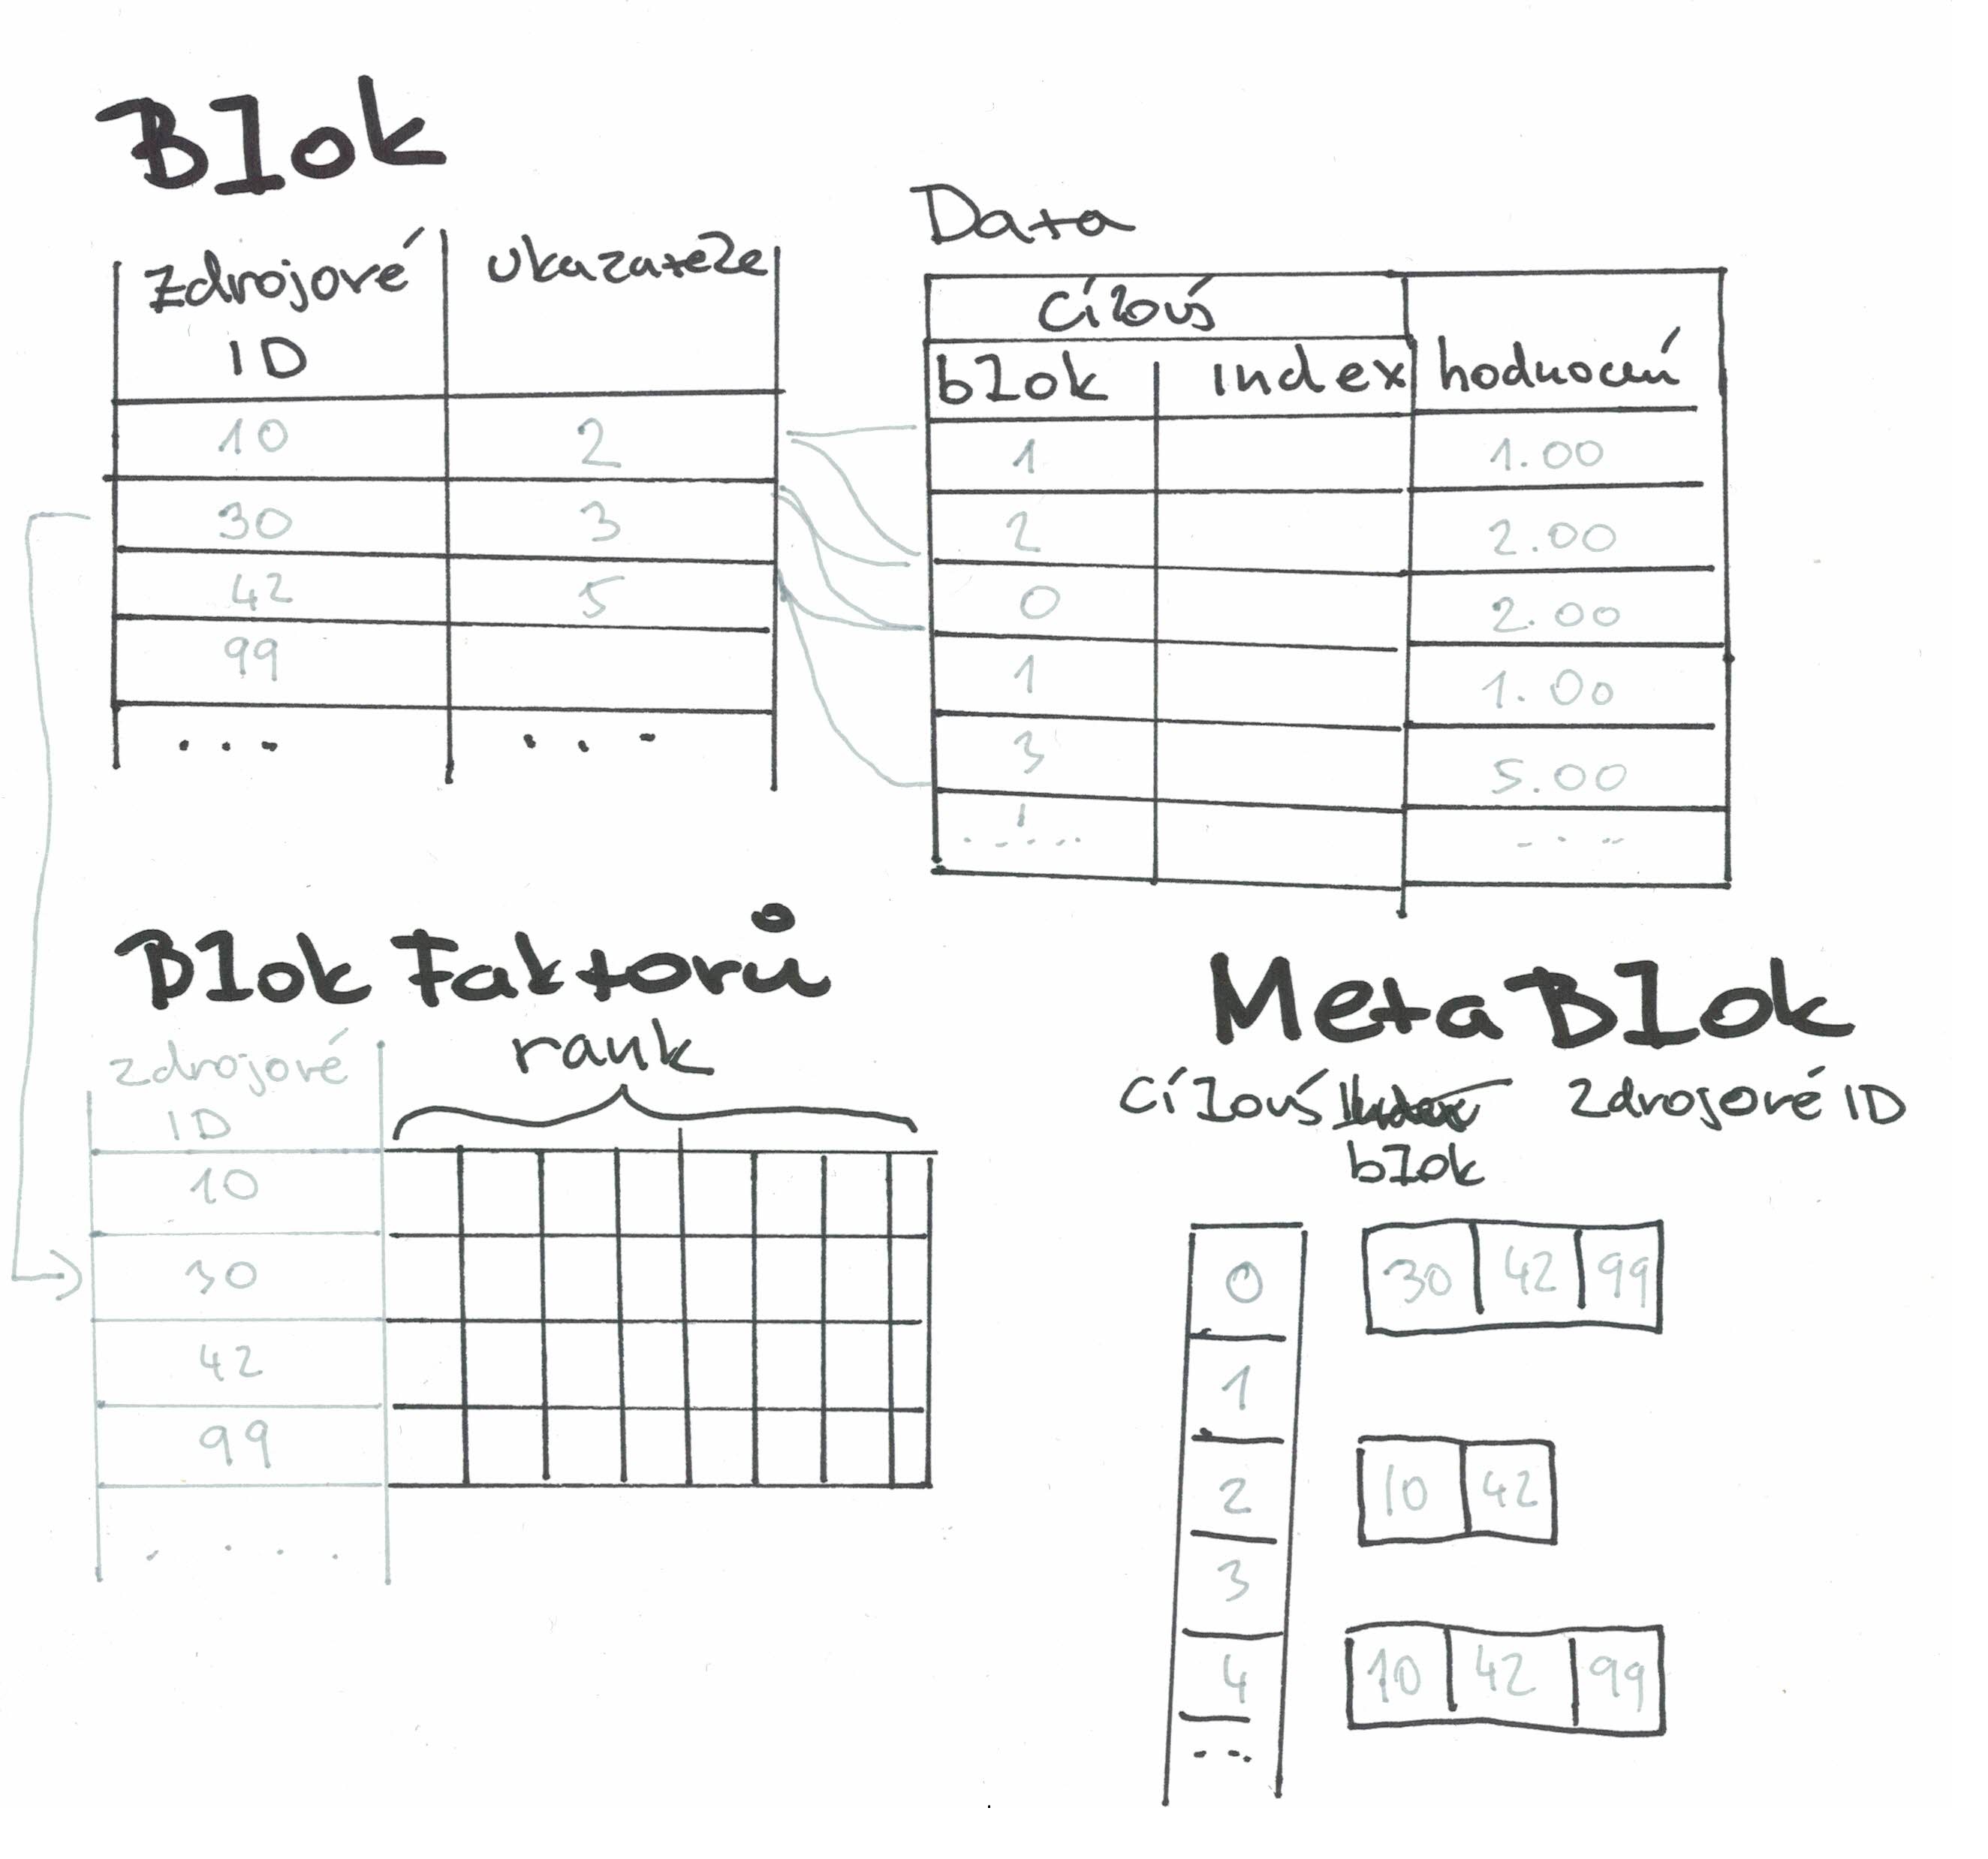 Blok
zdrojové ukazatele
ID
10 2
30 3
42 5
99
... ...
Data
Cílový
blok index hodnocení
1 1.00
2 2.00
0 2.00
1 1.00
3 5.00
Blok Faktorů
rank
zdrojové
ID
10
30
42
99
....
Meta Blok
Cílový Index zdrojové ID
blok
0 30 42 99
1
2 10 42
3
4 10 42 99
...